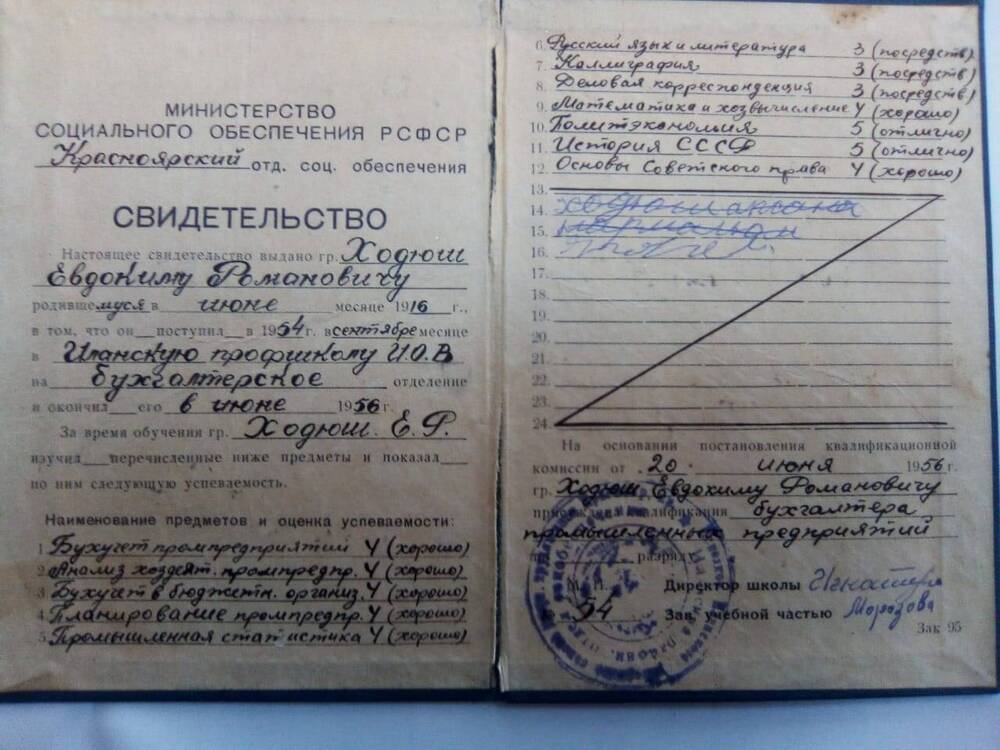 МИНИСТЕРСТВО
СОЦИАЛЬНОГО ОБЕСПЕЧЕНИЯ РСФСР
Красноярский отд. соц. обеспечения
СВИДЕТЕЛЬСТВО
Настоящее свидетельство выдано гр. Ходюш
Евдокиму Романовичу
родившемуся в июне месяце 1916 г.,
в том, что он поступил в 1954 г. в сентябре месяце
в Иланскую профшколу И.О.В
на бухгалтерское отделение
и окончил его в июне 1956 г.
За время обучения гр. Ходюш. Е.Р.
изучил перечисленные ниже предметы и показал
по ним следующую успеваемость.
Наименование предметов и оценка успеваемости:
1. Бухучет промпредприятий 4 (хорошо)
2. Анализ хоздеят. промпредпр. 4 (хорошо)
3. Бухучет в бюджетн. организ. 4 (хорошо)
4. Планирование промпредпр. 4 (хорошо)
5. Промышленная статистика 4 (хорошо)
6. Русский язык и литература 3 (посредств)
7. Каллиграфия 3 (посредств)
8. Деловая корреспонденция 3 (посредств)
9. Математика и хозвычисление 4 (хорошо)
10. Политэкономия 5 (отлично)
11. История СССР 5 (отлично)
12. Основы Советского права 4 (хорошо)
13.
14.
15.
16.
17.
18.
19.
20.
21.
22.
23.
24.
На основании постановления квалификационной
комиссии от 20 июня 1956 г.
гр. Ходюш Евдокиму Романовичу
присвоена квалификация бухгалтера
промышленных предприятий
разряду
М. П. Директор школы
54 Зав. учебной частью Морозова
Зак 95